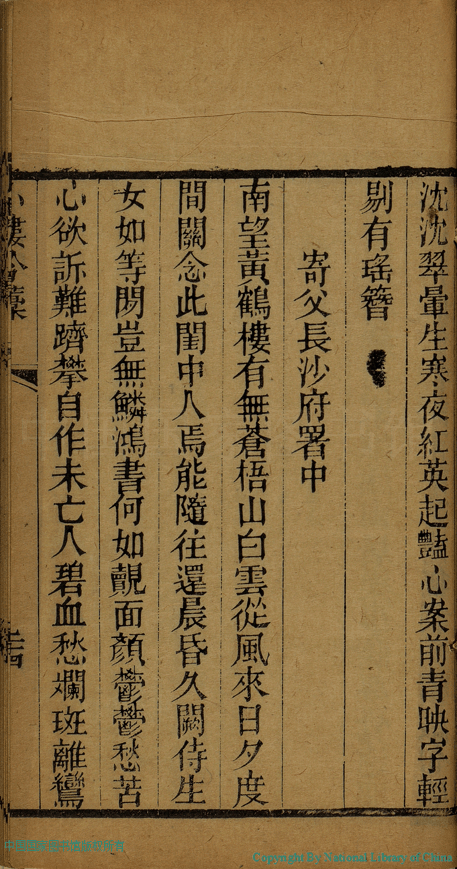 沈沈翠暈生寒夜紅英起豔心案前青映字輕
剔有瑤簪
寄父長沙府署中
南望黃鶴樓有無蒼梧山白雲從風來日夕度
間關念此閨中人焉能隨往還晨昏久闕侍生
女如等閒豈無鱗鴻書何如覿面顏鬱鬱愁苦
心欲訴難躋攀自作未亡人碧血愁斕斑離鸞
小樓吟藁
Copyright By National Library of China